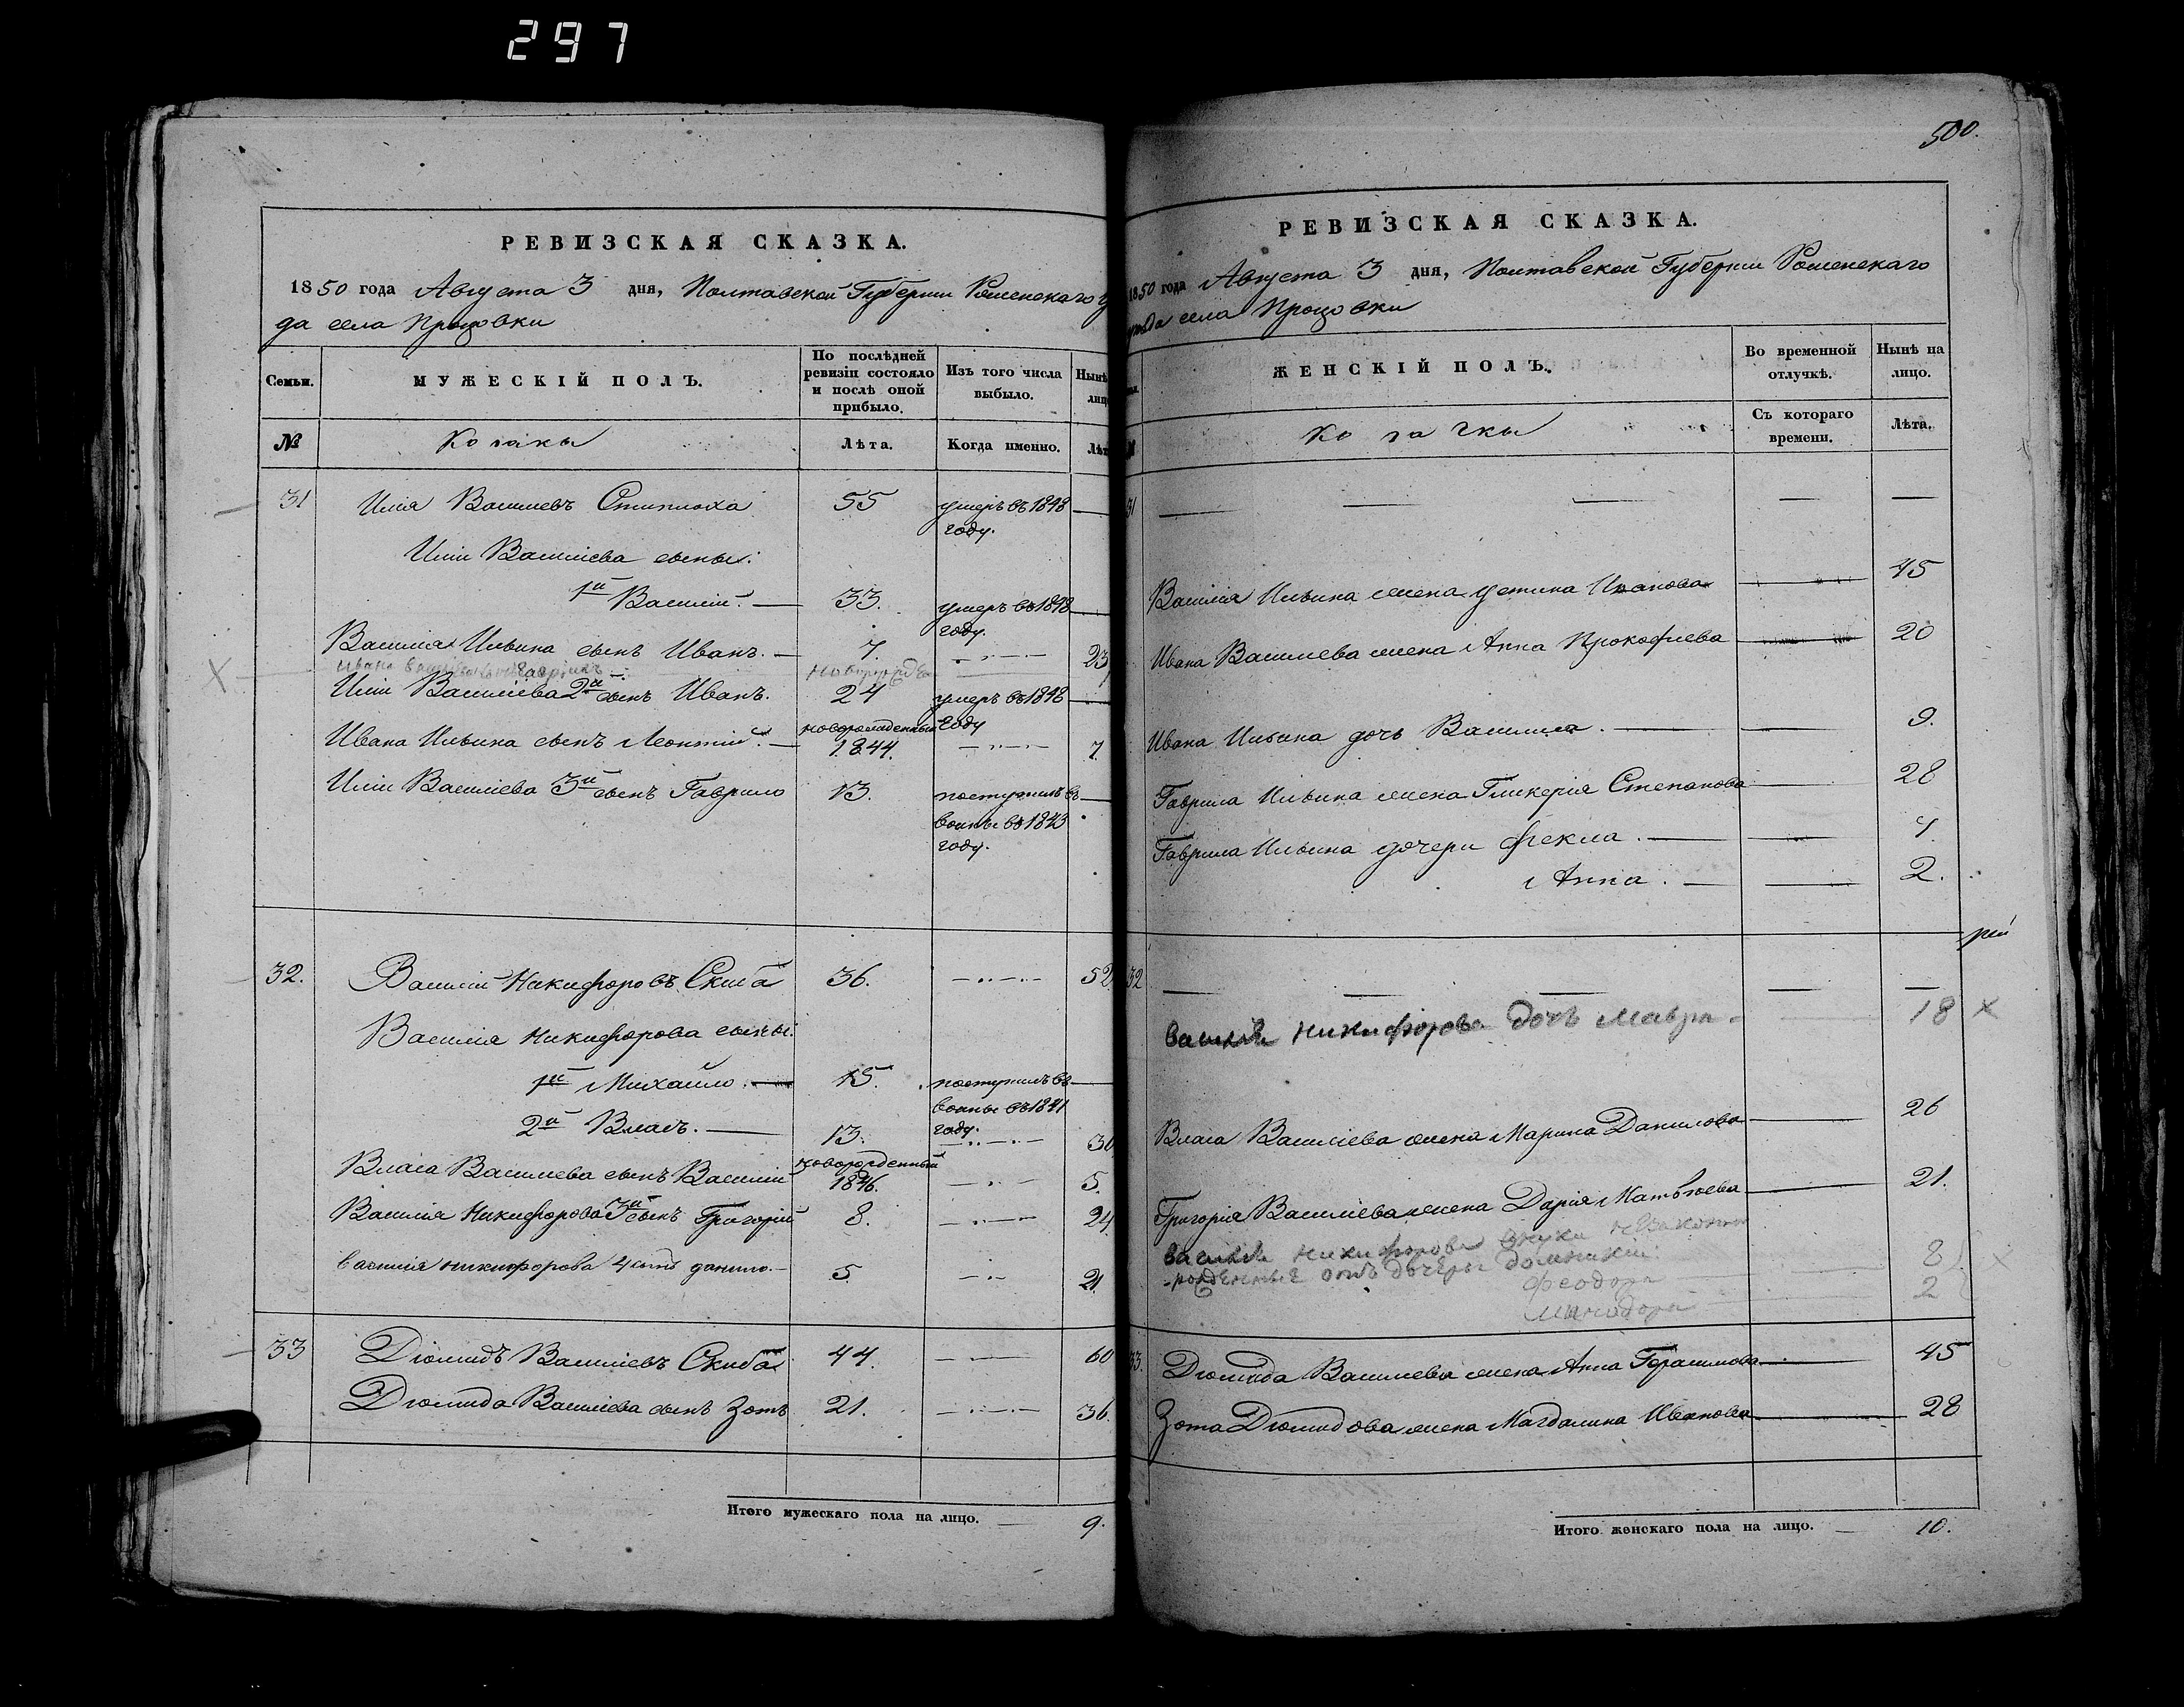 297
РЕВИЗСКАЯ СКАЗКА.
1850 года Августа 3 дня, Полтавской Губерніи Роменскаго у
да села Процовки
Семьи.
МУЖЕСКІЙ ПОЛЪ.
По послѣдней ревизіи состояло и послѣ оной прибыло.
Изъ того числа выбыло.
Нынѣ лицо
№
Козаки
Лѣта.
Когда именно.
Лѣт
31 Илія Васильевъ 55 умеръ въ 1848 году.
Иліи Василіева сыны:
1й Василій. 33. умеръ въ 1848 году.
Василія Ильина сынъ Иванъ. 7. 23
Ивана новорожде
Иліи Василіева 2й сынъ Иванъ. 24 умеръ въ 1848 году
Ивана Ильина сынъ Леонтій. новорожденный 1844. 7.
Иліи Василіева 3й сынъ Гаврило 13. поступилъ въ воины въ 1843 году.
32. Василій Никифоровъ Скиба 36. 52
Василія Никифорова сыны:
1й Михайло. 15. поступилъ въ воины въ 1841 году.
2й Власъ. 13. 30
Власа Васильева сынъ Василій новорожденный 1846. 5.
Василія Никифорова 3й сынъ Григорій 8. 24
василія никифорова 4 сынъ данило. 5. 21.
33 Діомидъ Василіевъ Скиба 44. 60
Діомида Василіева сынъ Зотъ 21. 36.
Итого мужескаго пола на лицо. 9.
500.
РЕВИЗСКАЯ СКАЗКА.
1850 года Августа 3 дня, Полтавской Губерніи Роменскаго
уѣзда села Процовки
ЖЕНСКІЙ ПОЛЪ.
Во временной отлучкѣ.
Нынѣ на лицо.
Козачки
Съ котораго времени.
Лѣта.
31
Василія Ильина жена Устина Иванова 45
Ивана Васильева жена Анна Прокофіева 20
Ивана Ильина дочь Василиса. 9.
Гаврила Ильина жена Гликерія Степанова 28
Гаврила Ильина дочери Фекла. 4.
Анна. 2.
32
василія никифорова дочь Мавра 18
Власа Василіева жена Марина Данилова 26
Григорія Василіева жена Дарія Матвѣева 21.
василія никифорова внуки незаконно
рожденные отъ дочери домникіи
феодора 8
2
33. Діомида Васильева жена Анна Герасимова 45
Зота Діомидова жена Магдалина Иванова 28
Итого женскаго пола на лицо. 10.